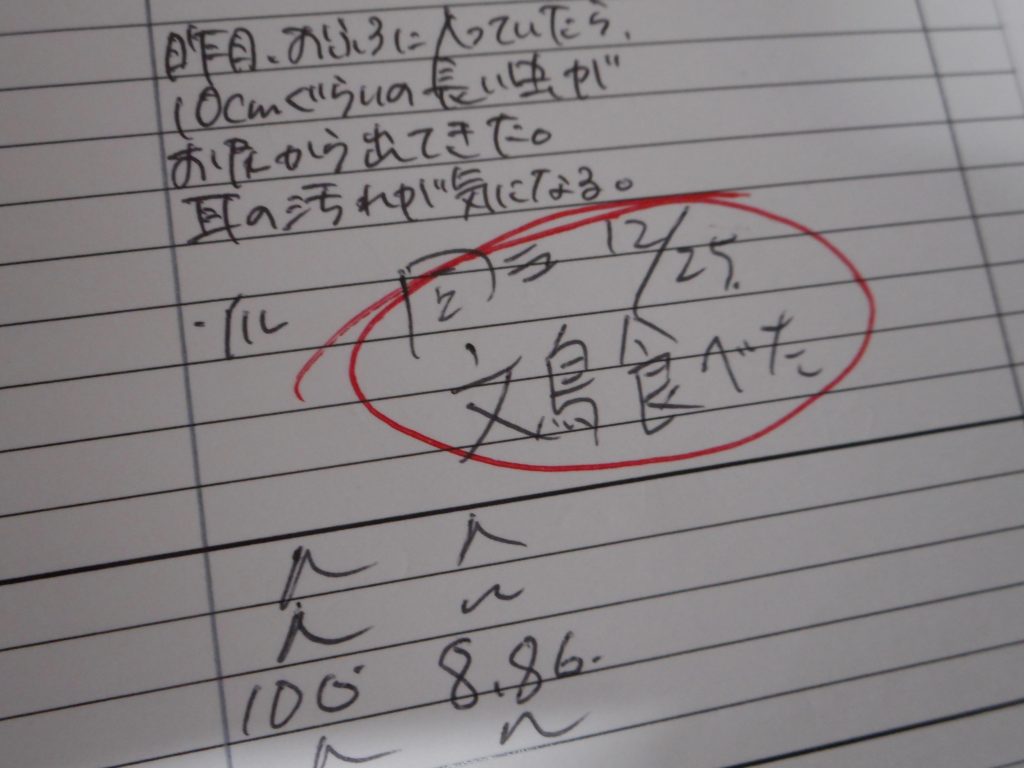 昨日、おふろに入っていたら、
10cmぐらいの長い虫が
お尻から出てきた。
耳の汚れが気になる。
12/25.
文鳥食べた
100 8.86.